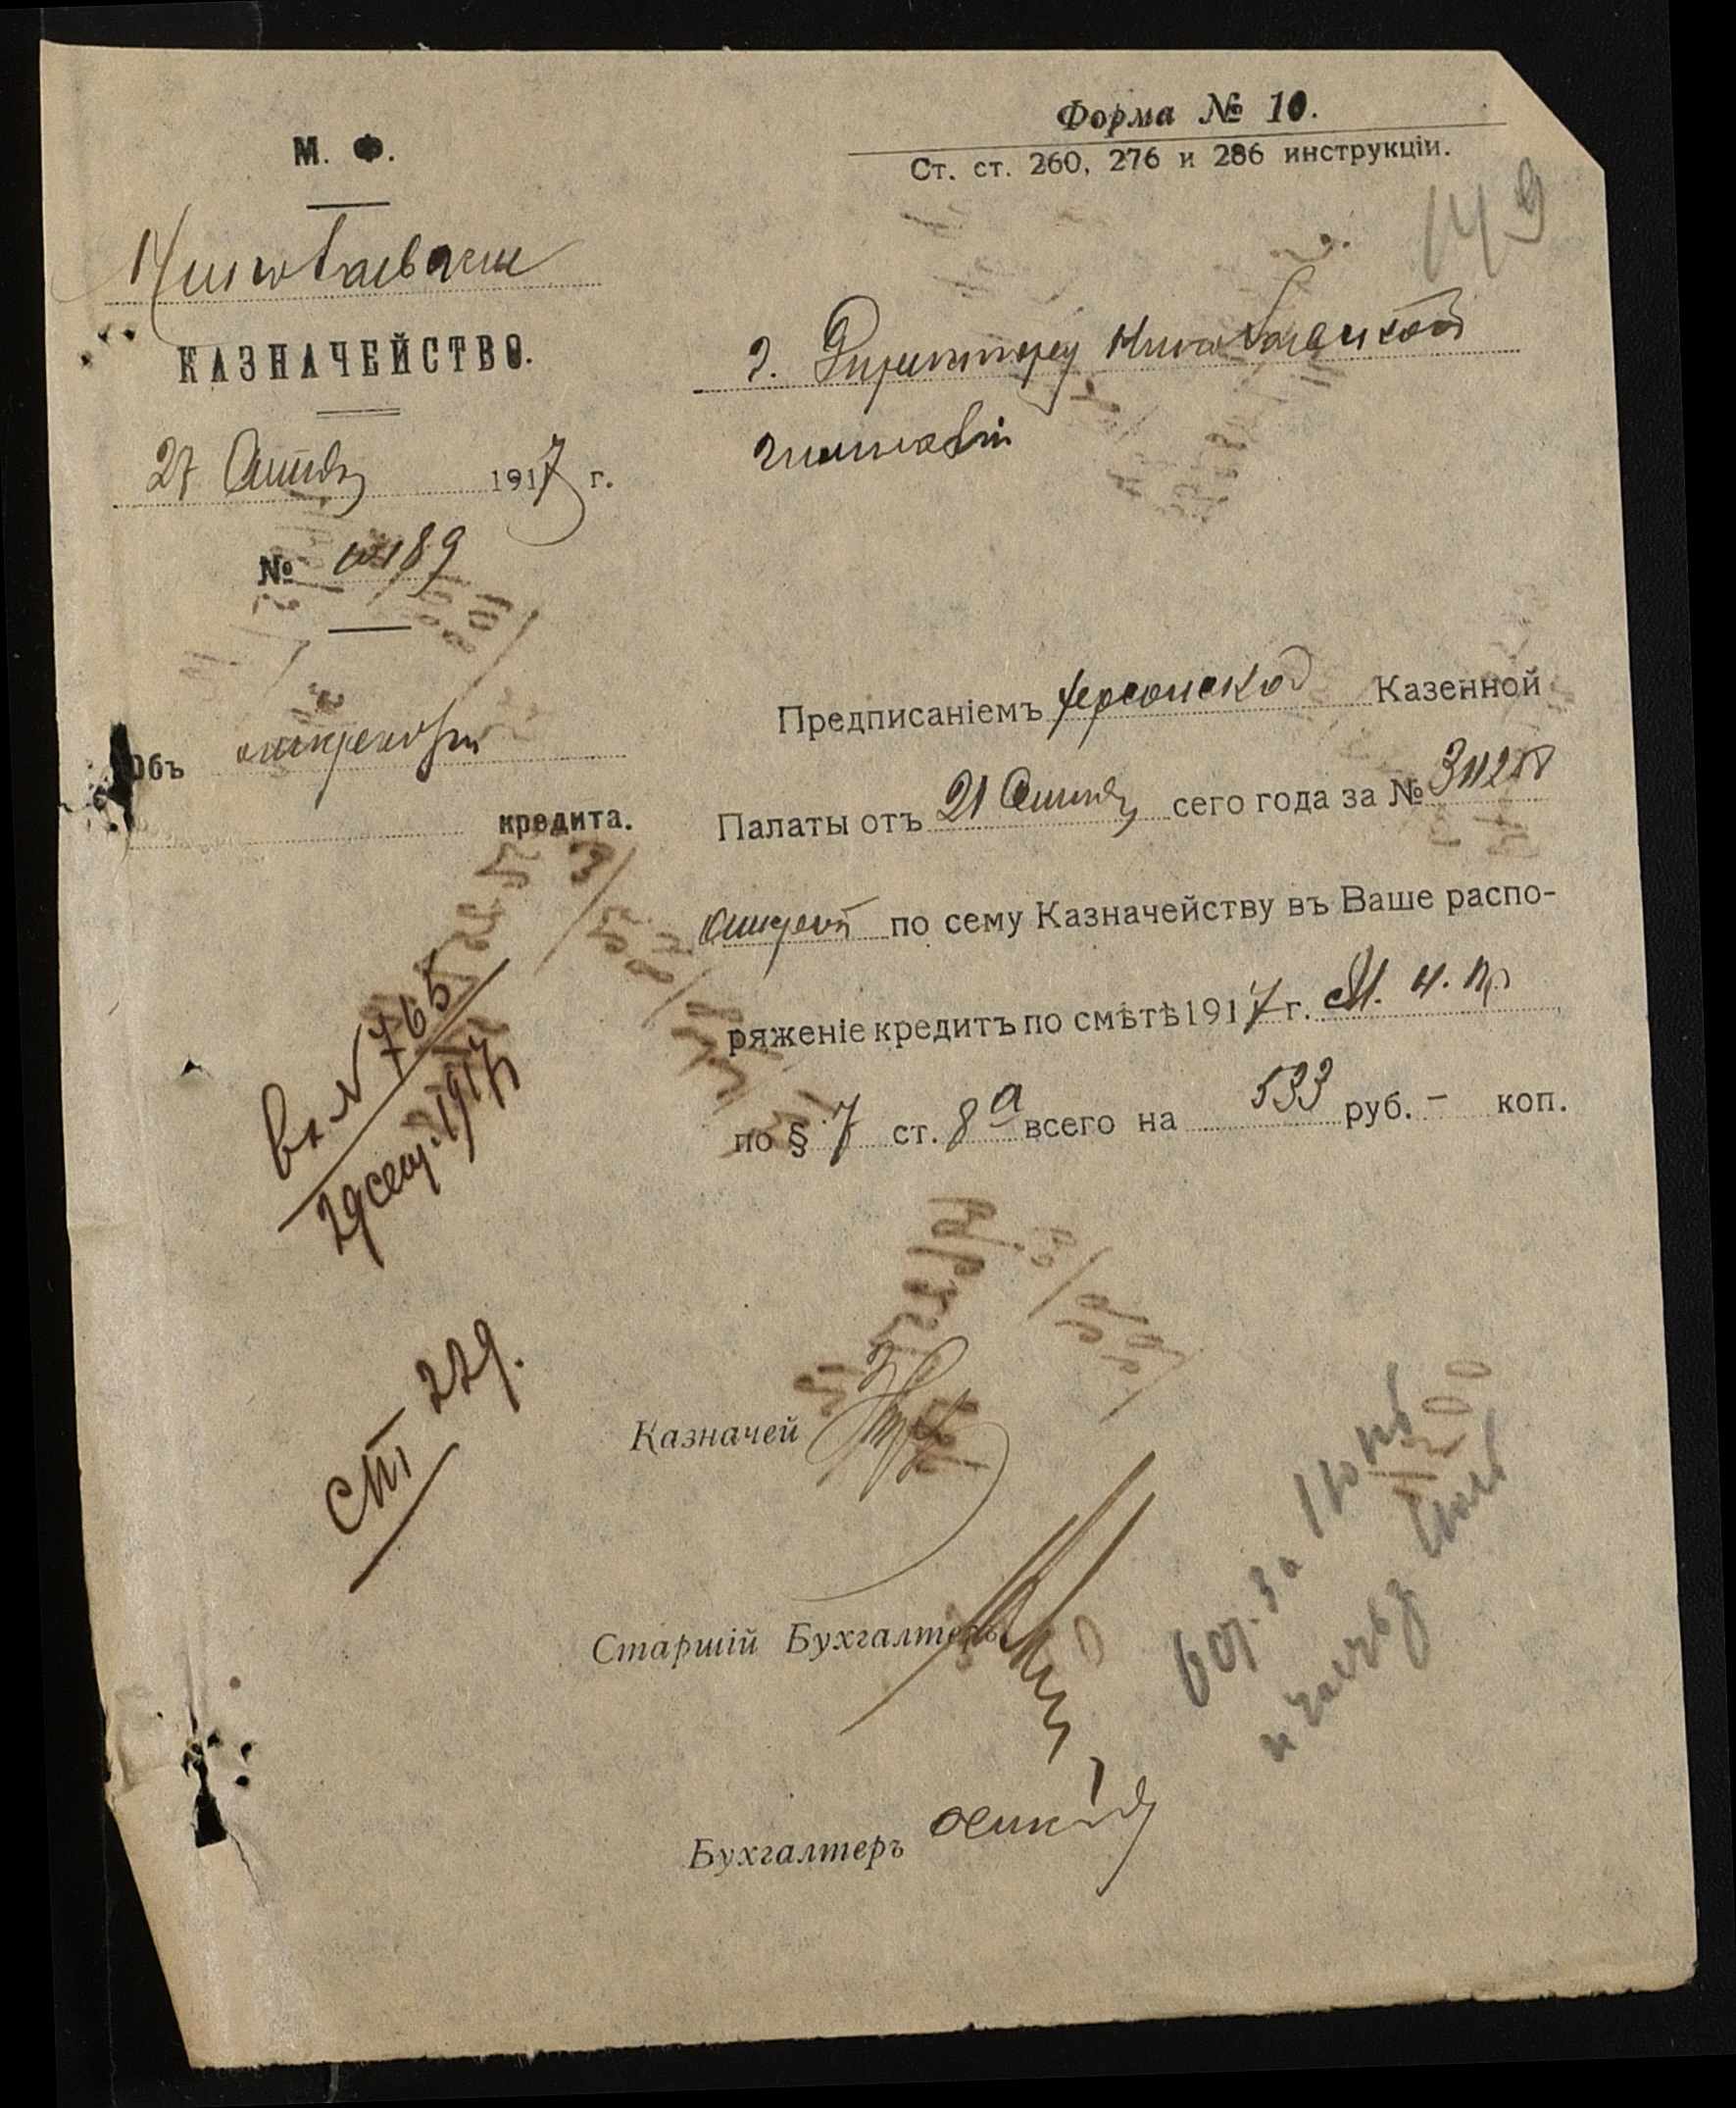 Форма № 10.
Ст. ст. 260, 276 и 286 инструкціи.
149
М. Ф.
Николаевское
КАЗНАЧЕЙСТВО.
27 Сентяб 1917 г.
№ 10189
Г. Директору Николаевской
гимназіи
Объ открытіи
кредита.
Предписаніемъ Херсонской Казенной
Палаты отъ 21 Сентяб сего года за №
открытъ по сему Казначейству въ Ваше распо-
ряженіе кредитъ по смѣтѣ 1917 г. М. Н. Пр
по § 7 ст. 8а всего на 533 руб. - коп.
Вх. № 765
29 сент. 1917
ст 229.
Казначей
Старшій Бухгалтеръ
Бухгалтеръ